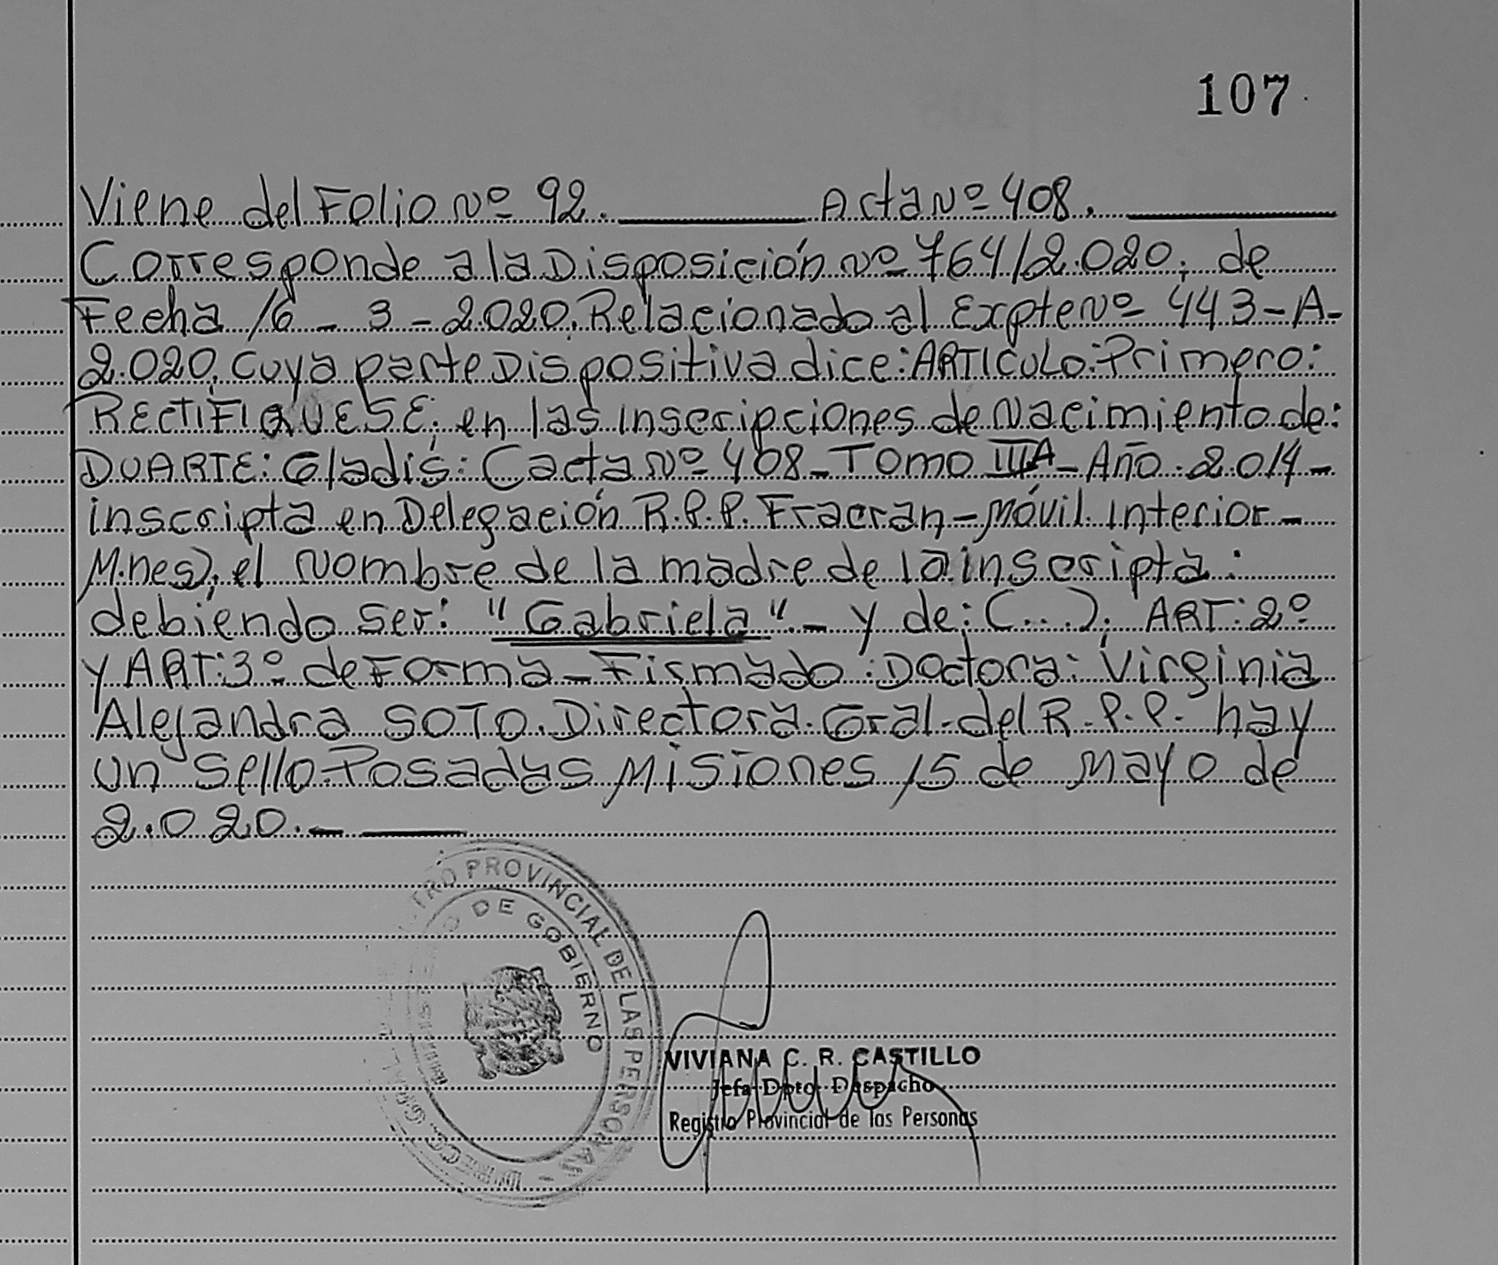 107
Viene del Folio Nº 92. Acta Nº 408.
Corresponde a la Disposición Nº 764/2.020, de
Fecha 16 - 3 - 2.020. Relacionado al Expte Nº 443-A-
2.020, Cuya parte Dispositiva dice: ARTICULO: Primero:
RECTIFIQUESE, en las inscripciones de Nacimiento de:
DUARTE: Gladis: (acta Nº 408 - Tomo IIIA - Año 2.014 -
inscripta en Delegación R.P.P. Fracran - Móvil Interior -
M.nes), el Nombre de la madre de la inscripta:
debiendo ser: "Gabriela". - y de: (...), ART: 2º
y ART: 3º de Forma - Firmado: Doctora: Virginia
Alejandra SOTO. Directora Gral. del R.P.P. hay
un sello. Posadas Misiones 15 de Mayo de
2.020. -
TRO PROVINCIAL DE LAS PERSONAS
DE GOBIERNO
VIVIANA C. R. CASTILLO
Jefa Dpto. Despacho
Registro Provincial de las Personas